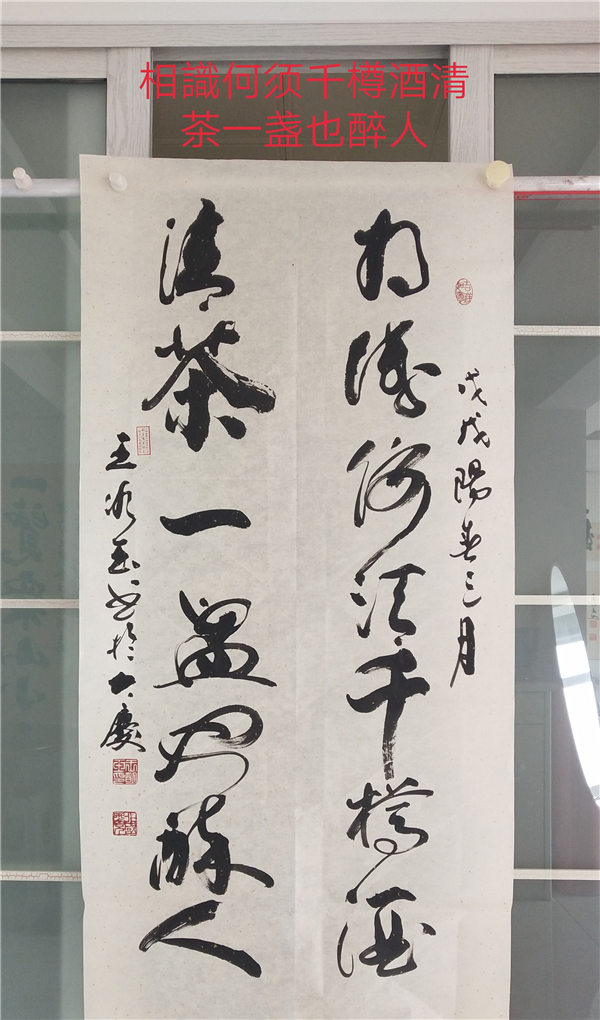 相識何须千樽酒清
茶一盏也醉人
戊戌陽春三月
相識何须千樽酒
清茶一盏也醉人
王冰玉书於大慶